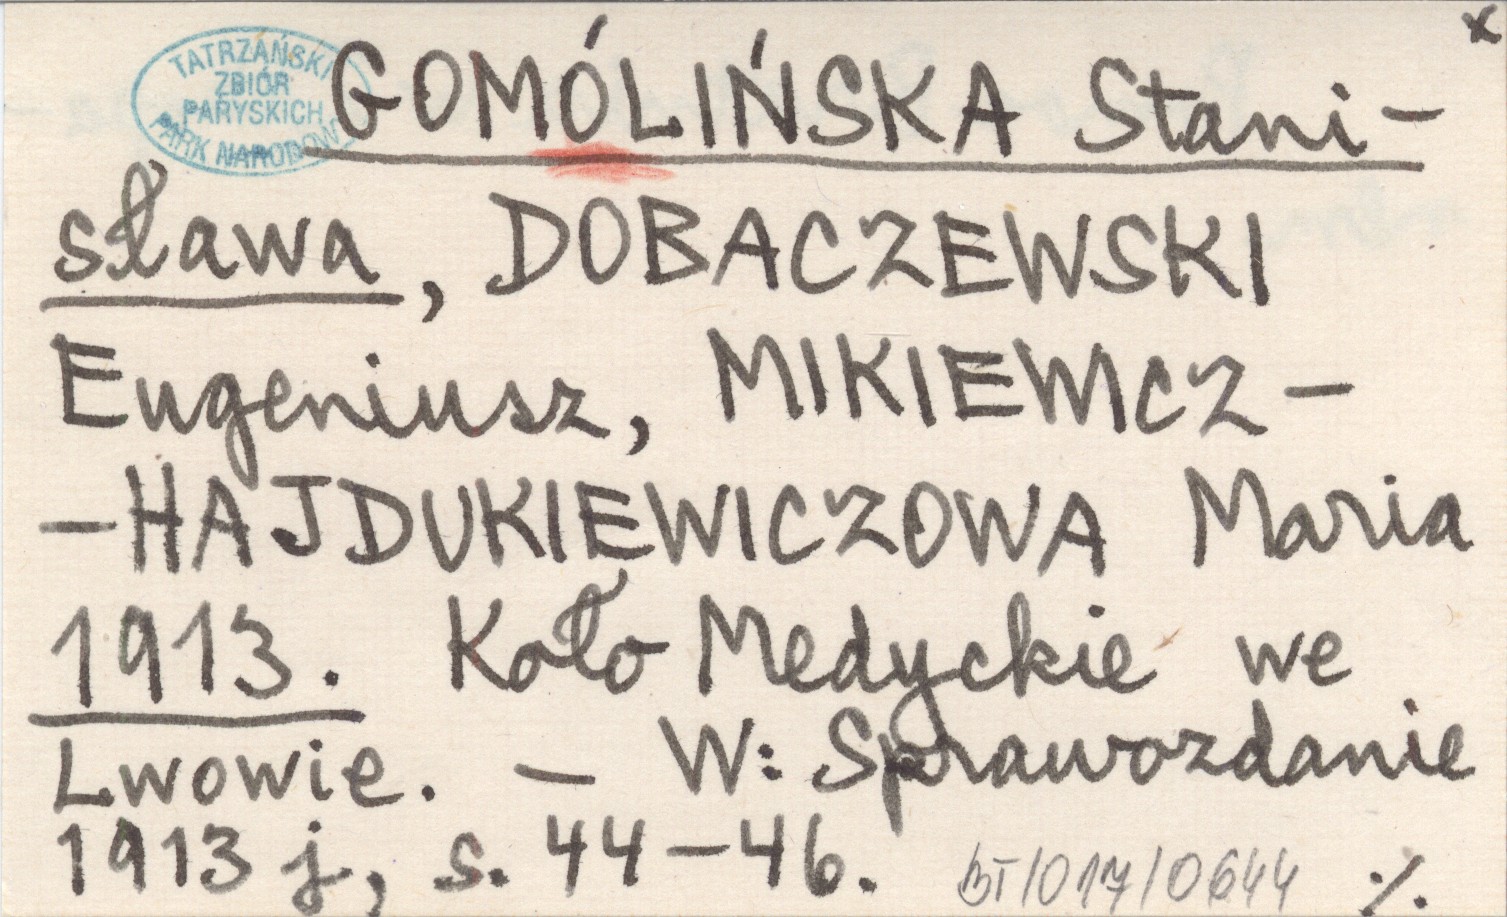 x
TATRZAŃSKI
ZBIÓR
PARYSKICH
PARK NARODOW
GOMÓLIŃSKA Stani-
sława, DOBACZEWSKI
Eugeniusz, MIKIEWICZ-
-HAJDUKIEWICZOWA Maria
1913. Koło Medyckie we
Lwowie. – W: Sprawozdanie
1913 j, s. 44-46.
BT/017/0644 ./.